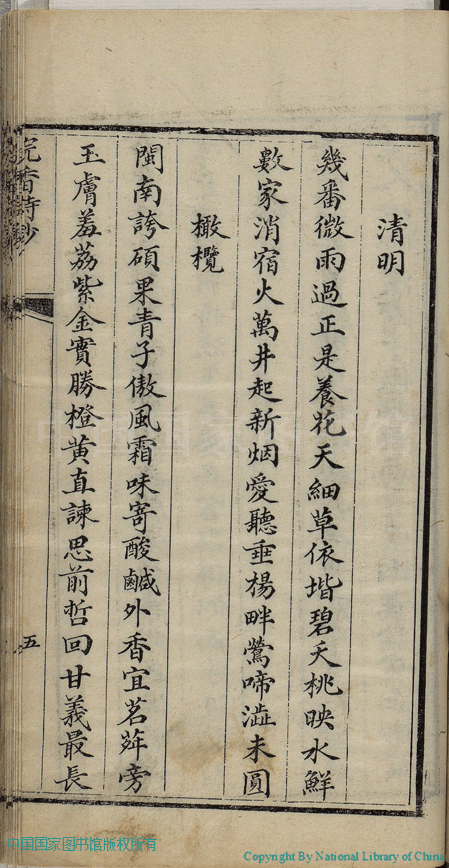 清明
幾番微雨過正是養花天細草依堦碧夭桃映水鮮
數家消宿火萬井起新烟愛聽垂楊畔鶯啼澁未圓
橄欖
閩南誇碩果青子傲風霜味寄酸鹹外香宜茗荈旁
玉膚羞荔紫金實勝橙黃直諫思前哲回甘義最長
香詩鈔
五
中国国家图书馆版权所有
Copyright By National Library of China